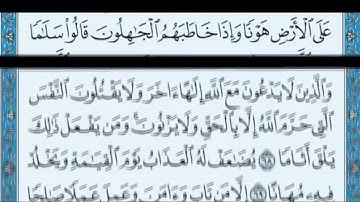 عَلَى ٱلْأَرْضِ هَوْنًا وَإِذَا خَاطَبَهُمُ ٱلْجَٰهِلُونَ قَالُوا۟ سَلَٰمًا
وَٱلَّذِينَ لَا يَدْعُونَ مَعَ ٱللَّهِ إِلَٰهًا ءَاخَرَ وَلَا يَقْتُلُونَ ٱلنَّفْسَ
ٱلَّتِى حَرَّمَ ٱللَّهُ إِلَّا بِٱلْحَقِّ وَلَا يَزْنُونَ ۚ وَمَن يَفْعَلْ ذَٰلِكَ
يَلْقَ أَثَامًا ۝٦٨ يُضَٰعَفْ لَهُ ٱلْعَذَابُ يَوْمَ ٱلْقِيَٰمَةِ وَيَخْلُدْ
فِيهِۦ مُهَانًا ۝٦٩ إِلَّا مَن تَابَ وَءَامَنَ وَعَمِلَ عَمَلًا صَٰلِحًا